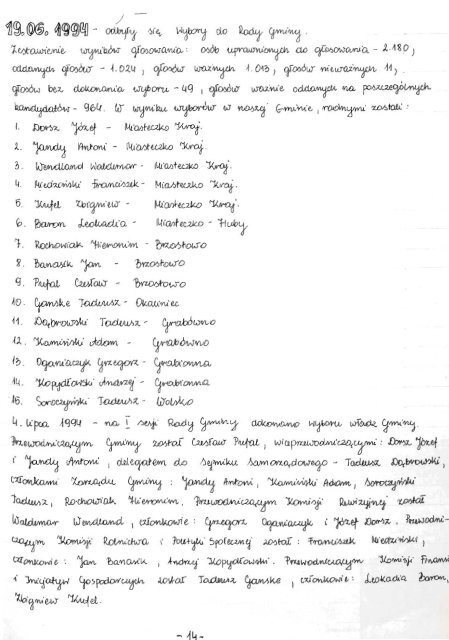 19.06.1994 - odbyły się Wybory do Rady Gminy.
Zestawienie wyników głosowania: osób uprawnionych do głosowania - 2.180,
oddanych głosów - 1.024, głosów ważnych 1.013, głosów nieważnych 11,
głosów bez dokonania wyboru - 49, głosów ważnie oddanych na poszczególnych
kandydatów - 964. W wyniku wyborów w naszej Gminie, radnymi zostali:
1. Dorsz Józef - Miasteczko Kraj.
2. Jandy Antoni - Miasteczko Kraj.
3. Wendland Waldemar - Miasteczko Kraj.
4. Miedziński Franciszek - Miasteczko Kraj.
5. Kufel Zbigniew - Miasteczko Kraj.
6. Baron Leokadia - Miasteczko - Huby
7. Rochowiak Hieronim - Brzostowo
8. Banasik Jan - Brzostowo
9. Prefal Czesław - Brzostowo
10. Ganske Tadeusz - Okaliniec
11. Dąbrowski Tadeusz - Grabówno
12. Kamiński Adam - Grabówno
13. Oganiaczyk Grzegorz - Grabionna
14. Kopydłowski Andrzej - Grabionna
15. Soroczyński Tadeusz - Wolsko
4. lipca 1994 - na I sesji Rady Gminy dokonano wyboru władz Gminy.
Przewodniczącym Gminy został Czesław Prefal, wiceprzewodniczącymi: Dorsz Józef
i Jandy Antoni, delegatem do Sejmiku Samorządowego - Tadeusz Dąbrowski,
członkami Zarządu Gminy: Jandy Antoni, Kamiński Adam, Soroczyński
Tadeusz, Rochowiak Hieronim. Przewodniczącym Komisji Rewizyjnej został
Waldemar Wendland, członkowie: Grzegorz Oganiaczyk i Józef Dorsz. Przewodni-
czącym Komisji Rolnictwa i Polityki Społecznej został: Franciszek Miedziński,
członkowie: Jan Banasik, Andrzej Kopydłowski. Przewodniczącym Komisji Finansów
i Inicjatyw Gospodarczych został Tadeusz Ganske, członkowie: Leokadia Baron,
Zbigniew Kufel.
- 14 -